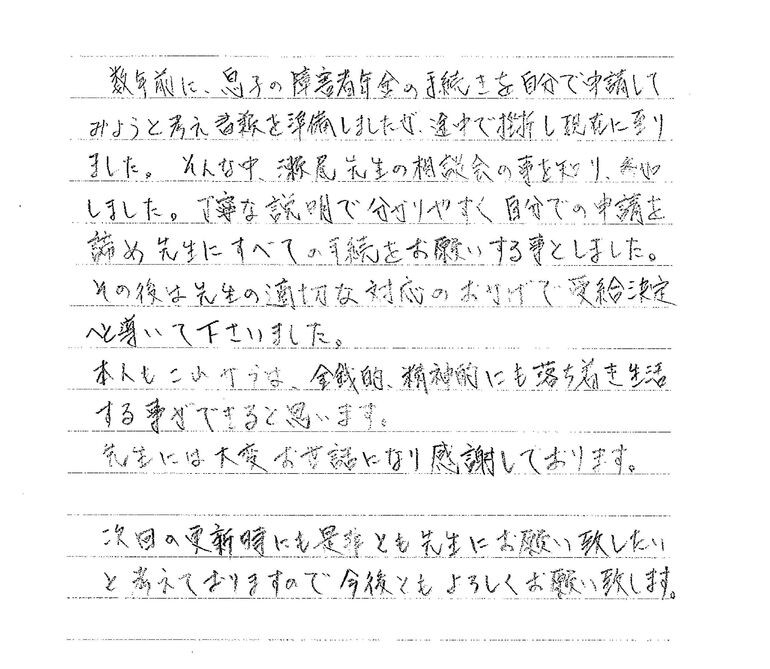 数年前に、息子の障害者年金の手続きを自分で申請して
みようと考え書類を準備しましたが、途中で挫折し現在に至り
ました。そんな中、瀬尾先生の相談会の事を知り、参加
しました。丁寧な説明で分かりやすく自分での申請を
諦め先生にすべての手続をお願いする事としました。
その後は先生の適切な対応のおかげで受給決定
へと導いて下さいました。
本人もこれからは、金銭的、精神的にも落ち着き生活
する事ができると思います。
先生には大変お世話になり感謝しております。
次回の更新時にも是非とも先生にお願い致したい
と考えておりますので今後ともよろしくお願い致します。